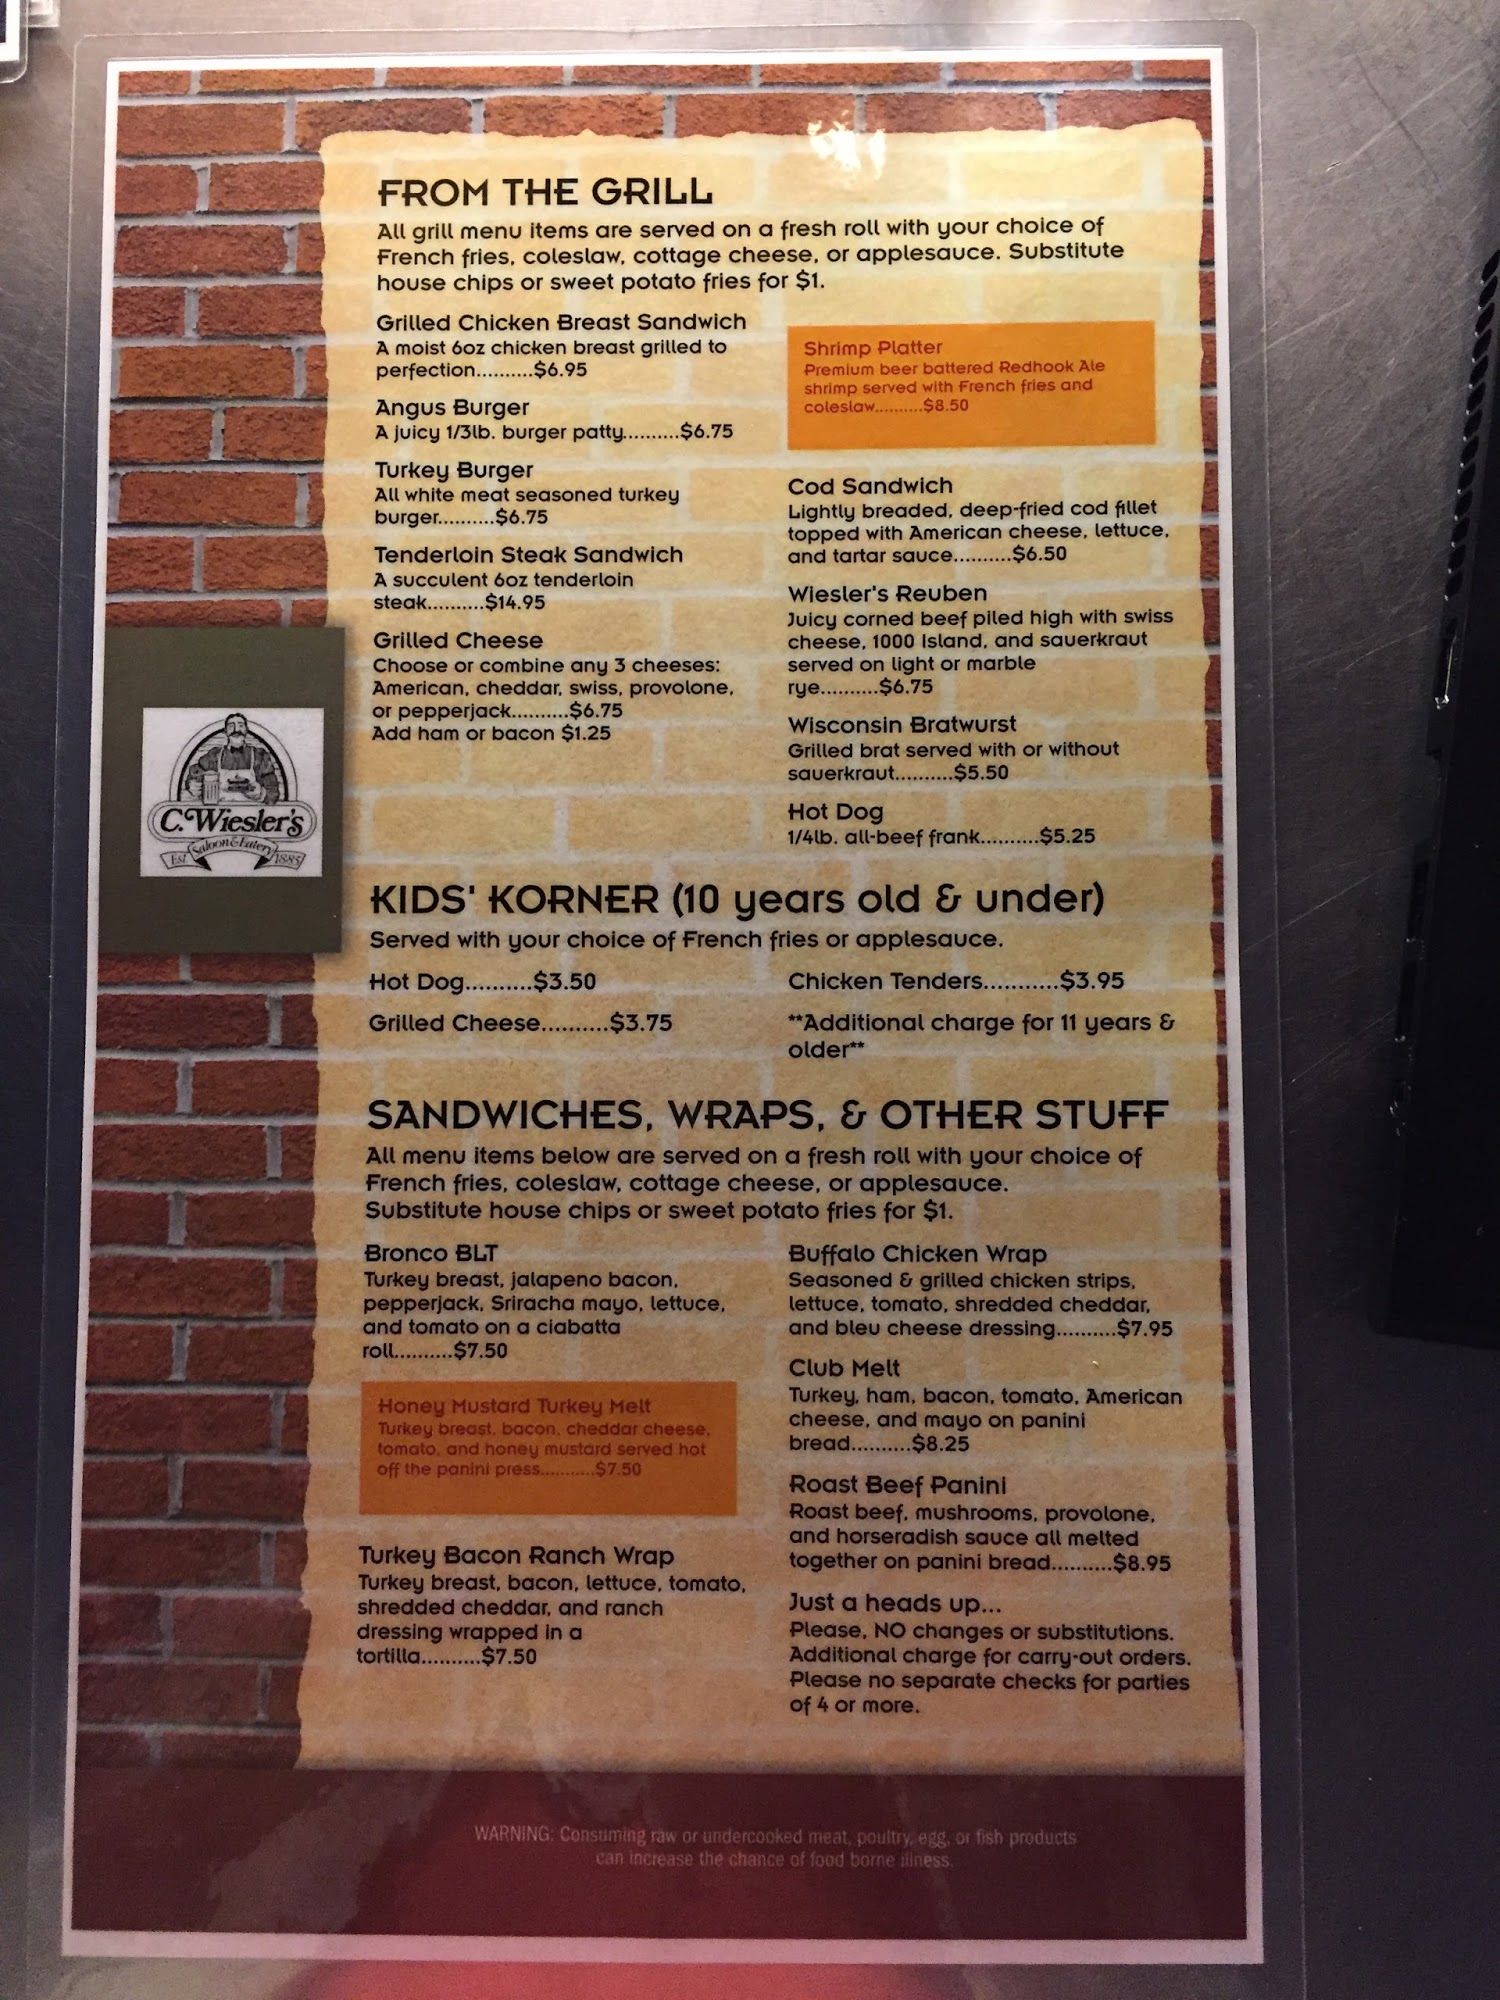 FROM THE GRILL
All grill menu items are served on a fresh roll with your choice of
French fries, coleslaw, cottage cheese, or applesauce. Substitute
house chips or sweet potato fries for $1.
Grilled Chicken Breast Sandwich
A moist 6oz chicken breast grilled to
perfection..........$6.95
Angus Burger
A juicy 1/3lb. burger patty..........$6.75
Turkey Burger
All white meat seasoned turkey
burger..........$6.75
Tenderloin Steak Sandwich
A succulent 6oz tenderloin
steak..........$14.95
Grilled Cheese
Choose or combine any 3 cheeses:
American, cheddar, swiss, provolone,
or pepperjack..........$6.75
Add ham or bacon $1.25
Shrimp Platter
Premium beer battered Redhook Ale
shrimp served with French fries and
coleslaw..........$8.50
Cod Sandwich
Lightly breaded, deep-fried cod fillet
topped with American cheese, lettuce,
and tartar sauce..........$6.50
Wiesler's Reuben
Juicy corned beef piled high with swiss
cheese, 1000 Island, and sauerkraut
served on light or marble
rye..........$6.75
Wisconsin Bratwurst
Grilled brat served with or without
sauerkraut..........$5.50
Hot Dog
1/4lb. all-beef frank..........$5.25
C. Wiesler's
Saloon & Eatery
Est 1885
KIDS' KORNER (10 years old & under)
Served with your choice of French fries or applesauce.
Hot Dog..........$3.50
Grilled Cheese..........$3.75
Chicken Tenders...........$3.95
**Additional charge for 11 years &
older**
SANDWICHES, WRAPS, & OTHER STUFF
All menu items below are served on a fresh roll with your choice of
French fries, coleslaw, cottage cheese, or applesauce.
Substitute house chips or sweet potato fries for $1.
Bronco BLT
Turkey breast, jalapeno bacon,
pepperjack, Sriracha mayo, lettuce,
and tomato on a ciabatta
roll..........$7.50
Honey Mustard Turkey Melt
Turkey breast, bacon, cheddar cheese,
tomato, and honey mustard served hot
off the panini press..........$7.50
Turkey Bacon Ranch Wrap
Turkey breast, bacon, lettuce, tomato,
shredded cheddar, and ranch
dressing wrapped in a
tortilla..........$7.50
Buffalo Chicken Wrap
Seasoned & grilled chicken strips,
lettuce, tomato, shredded cheddar,
and bleu cheese dressing..........$7.95
Club Melt
Turkey, ham, bacon, tomato, American
cheese, and mayo on panini
bread..........$8.25
Roast Beef Panini
Roast beef, mushrooms, provolone,
and horseradish sauce all melted
together on panini bread..........$8.95
Just a heads up...
Please, NO changes or substitutions.
Additional charge for carry-out orders.
Please no separate checks for parties
of 4 or more.
WARNING: Consuming raw or undercooked meat, poultry, egg, or fish products
can increase the chance of food borne illness.